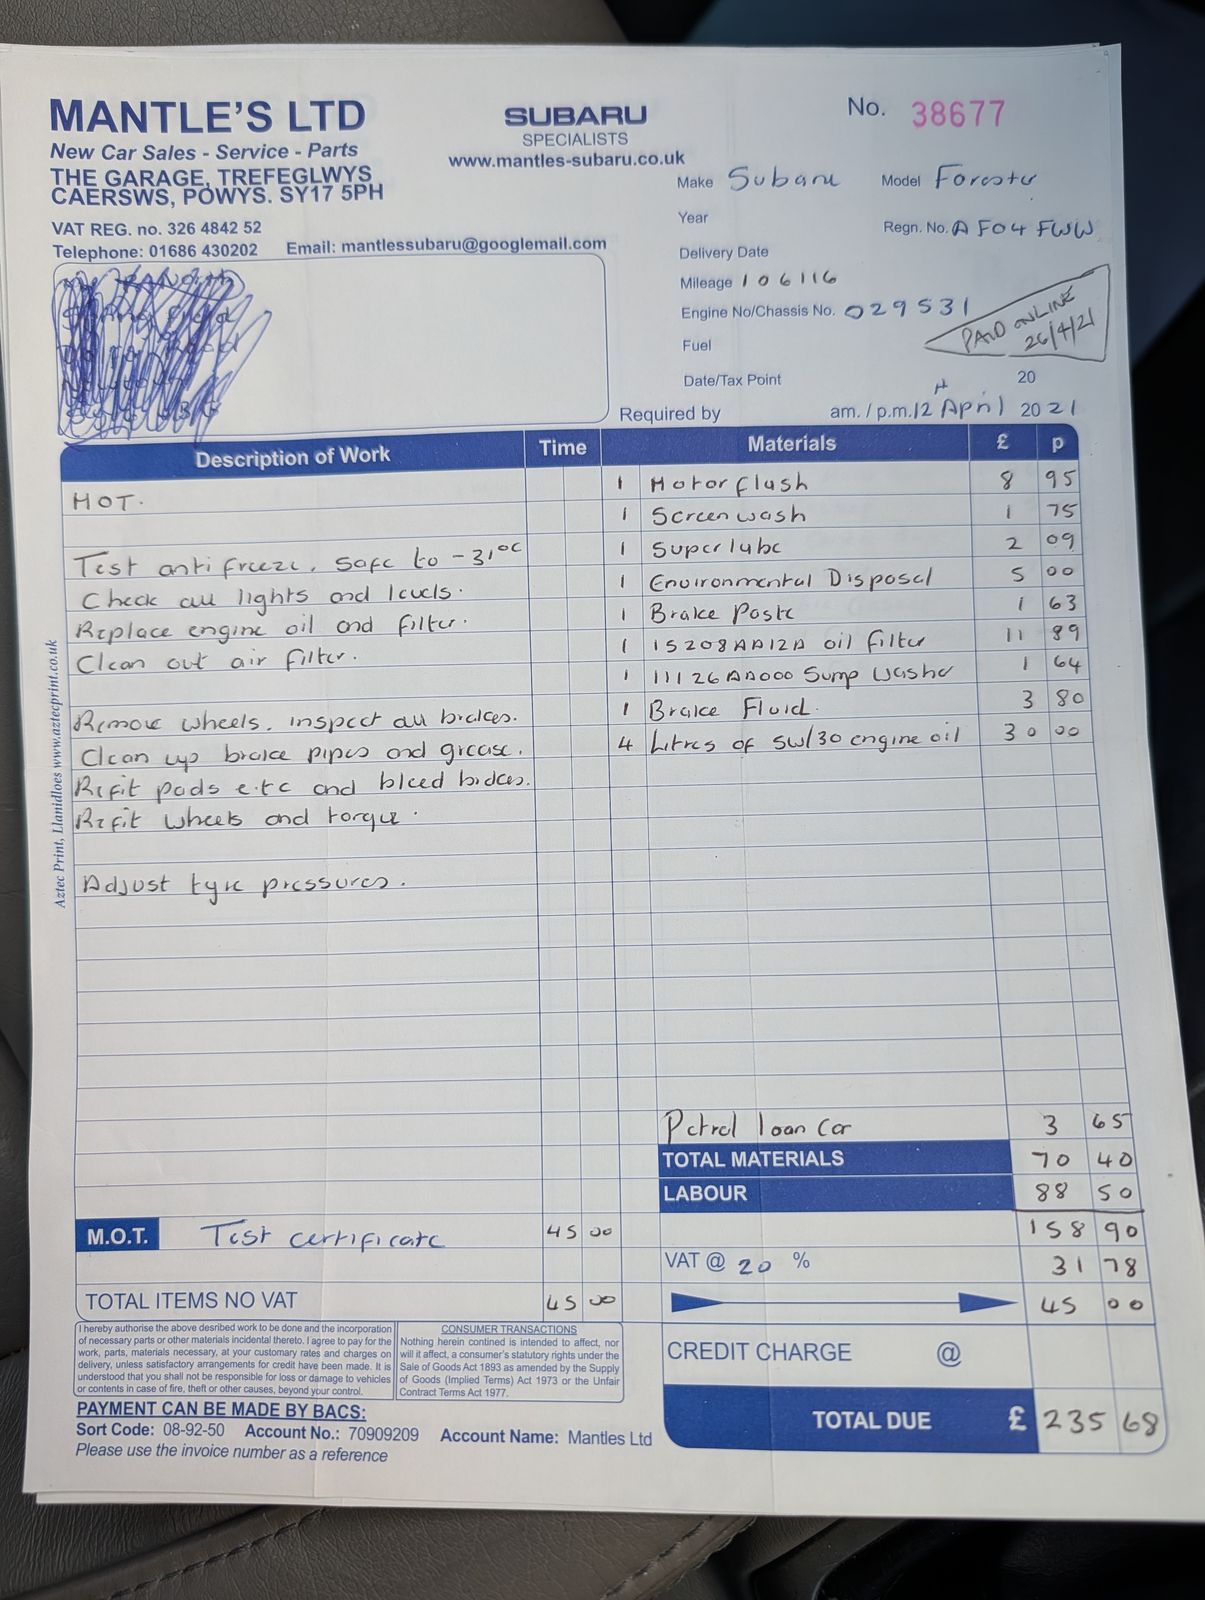 MANTLE'S LTD
New Car Sales - Service - Parts
THE GARAGE, TREFEGLWYS
CAERSWS, POWYS. SY17 5PH
VAT REG. no. 326 4842 52
Telephone: 01686 430202 Email: mantlessubaru@googlemail.com
SUBARU
SPECIALISTS
www.mantles-subaru.co.uk
No. 38677
Make Subaru Model Forester
Year
Regn. No. AF04 FWW
Delivery Date
Mileage 106116
Engine No/Chassis No. 029531
PAID ONLINE
26/4/21
Fuel
Date/Tax Point 20
Required by am. / p.m. 12th April 2021
Description of Work Time Materials £ p
MOT.
Test antifreeze. Safe to -31°C
Check all lights and levels.
Replace engine oil and filter.
Clean out air filter.
Remove wheels, inspect all brakes.
Clean up brake pipes and grease.
Refit pads etc and bleed brakes.
Refit wheels and torque.
Adjust tyre pressures.
1 Motorflush 8 95
1 Screenwash 1 75
1 Superlube 2 09
1 Environmental Disposal 5 00
1 Brake Paste 1 63
1 15208AA12A oil filter 11 89
1 11126AA000 Sump Washer 1 64
1 Brake Fluid. 3 80
4 Litres of 5W/30 engine oil 30 00
Petrol loan car 3 65
TOTAL MATERIALS 70 40
LABOUR 88 50
158 90
VAT @ 20 % 31 78
45 00
CREDIT CHARGE @
TOTAL DUE £ 235 68
M.O.T. Test certificate 45 00
TOTAL ITEMS NO VAT 45 00
I hereby authorise the above desribed work to be done and the incorporation
of necessary parts or other materials incidental thereto. I agree to pay for the
work, parts, materials necessary, at your customary rates and charges on
delivery, unless satisfactory arrangements for credit have been made. It is
understood that you shall not be responsible for loss or damage to vehicles
or contents in case of fire, theft or other causes, beyond your control.
CONSUMER TRANSACTIONS
Nothing herein contined is intended to affect, nor
will it affect, a consumer's statutory rights under the
Sale of Goods Act 1893 as amended by the Supply
of Goods (Implied Terms) Act 1973 or the Unfair
Contract Terms Act 1977.
PAYMENT CAN BE MADE BY BACS:
Sort Code: 08-92-50 Account No.: 70909209 Account Name: Mantles Ltd
Please use the invoice number as a reference
Aztec Print, Llanidloes www.aztecprint.co.uk